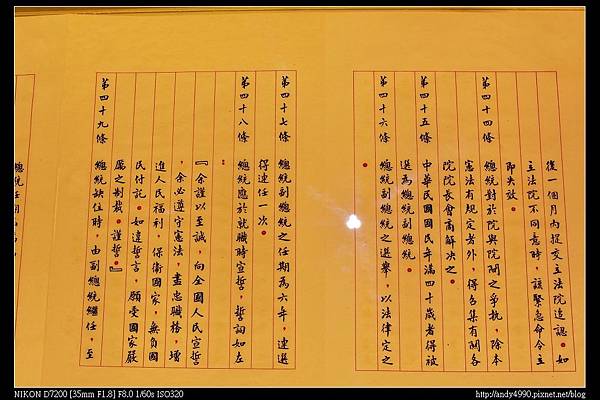 復一個月內提交立法院追認。如
立法院不同意時，該緊急命令立
即失效。
第四十四條 總統對於院與院間之爭執，除本
憲法有規定者外，得召集有關各
院院長會商解決之。
第四十五條 中華民國國民年滿四十歲者得被
選為總統副總統。
第四十六條 總統副總統之選舉，以法律定之
。
第四十七條 總統副總統之任期為六年，連選
得連任一次。
第四十八條 總統應於就職時宣誓，誓詞如左
：
『余謹以至誠，向全國人民宣誓
，余必遵守憲法，盡忠職務，增
進人民福利，保衛國家，無負國
民付託。如違誓言，願受國家嚴
厲之制裁。謹誓。』
第四十九條 總統缺位時，由副總統繼任，至
總統任期
NIKON D7200 [35mm F1.8] F8.0 1/60s ISO320
http://andy4990.pixnet.net/blog